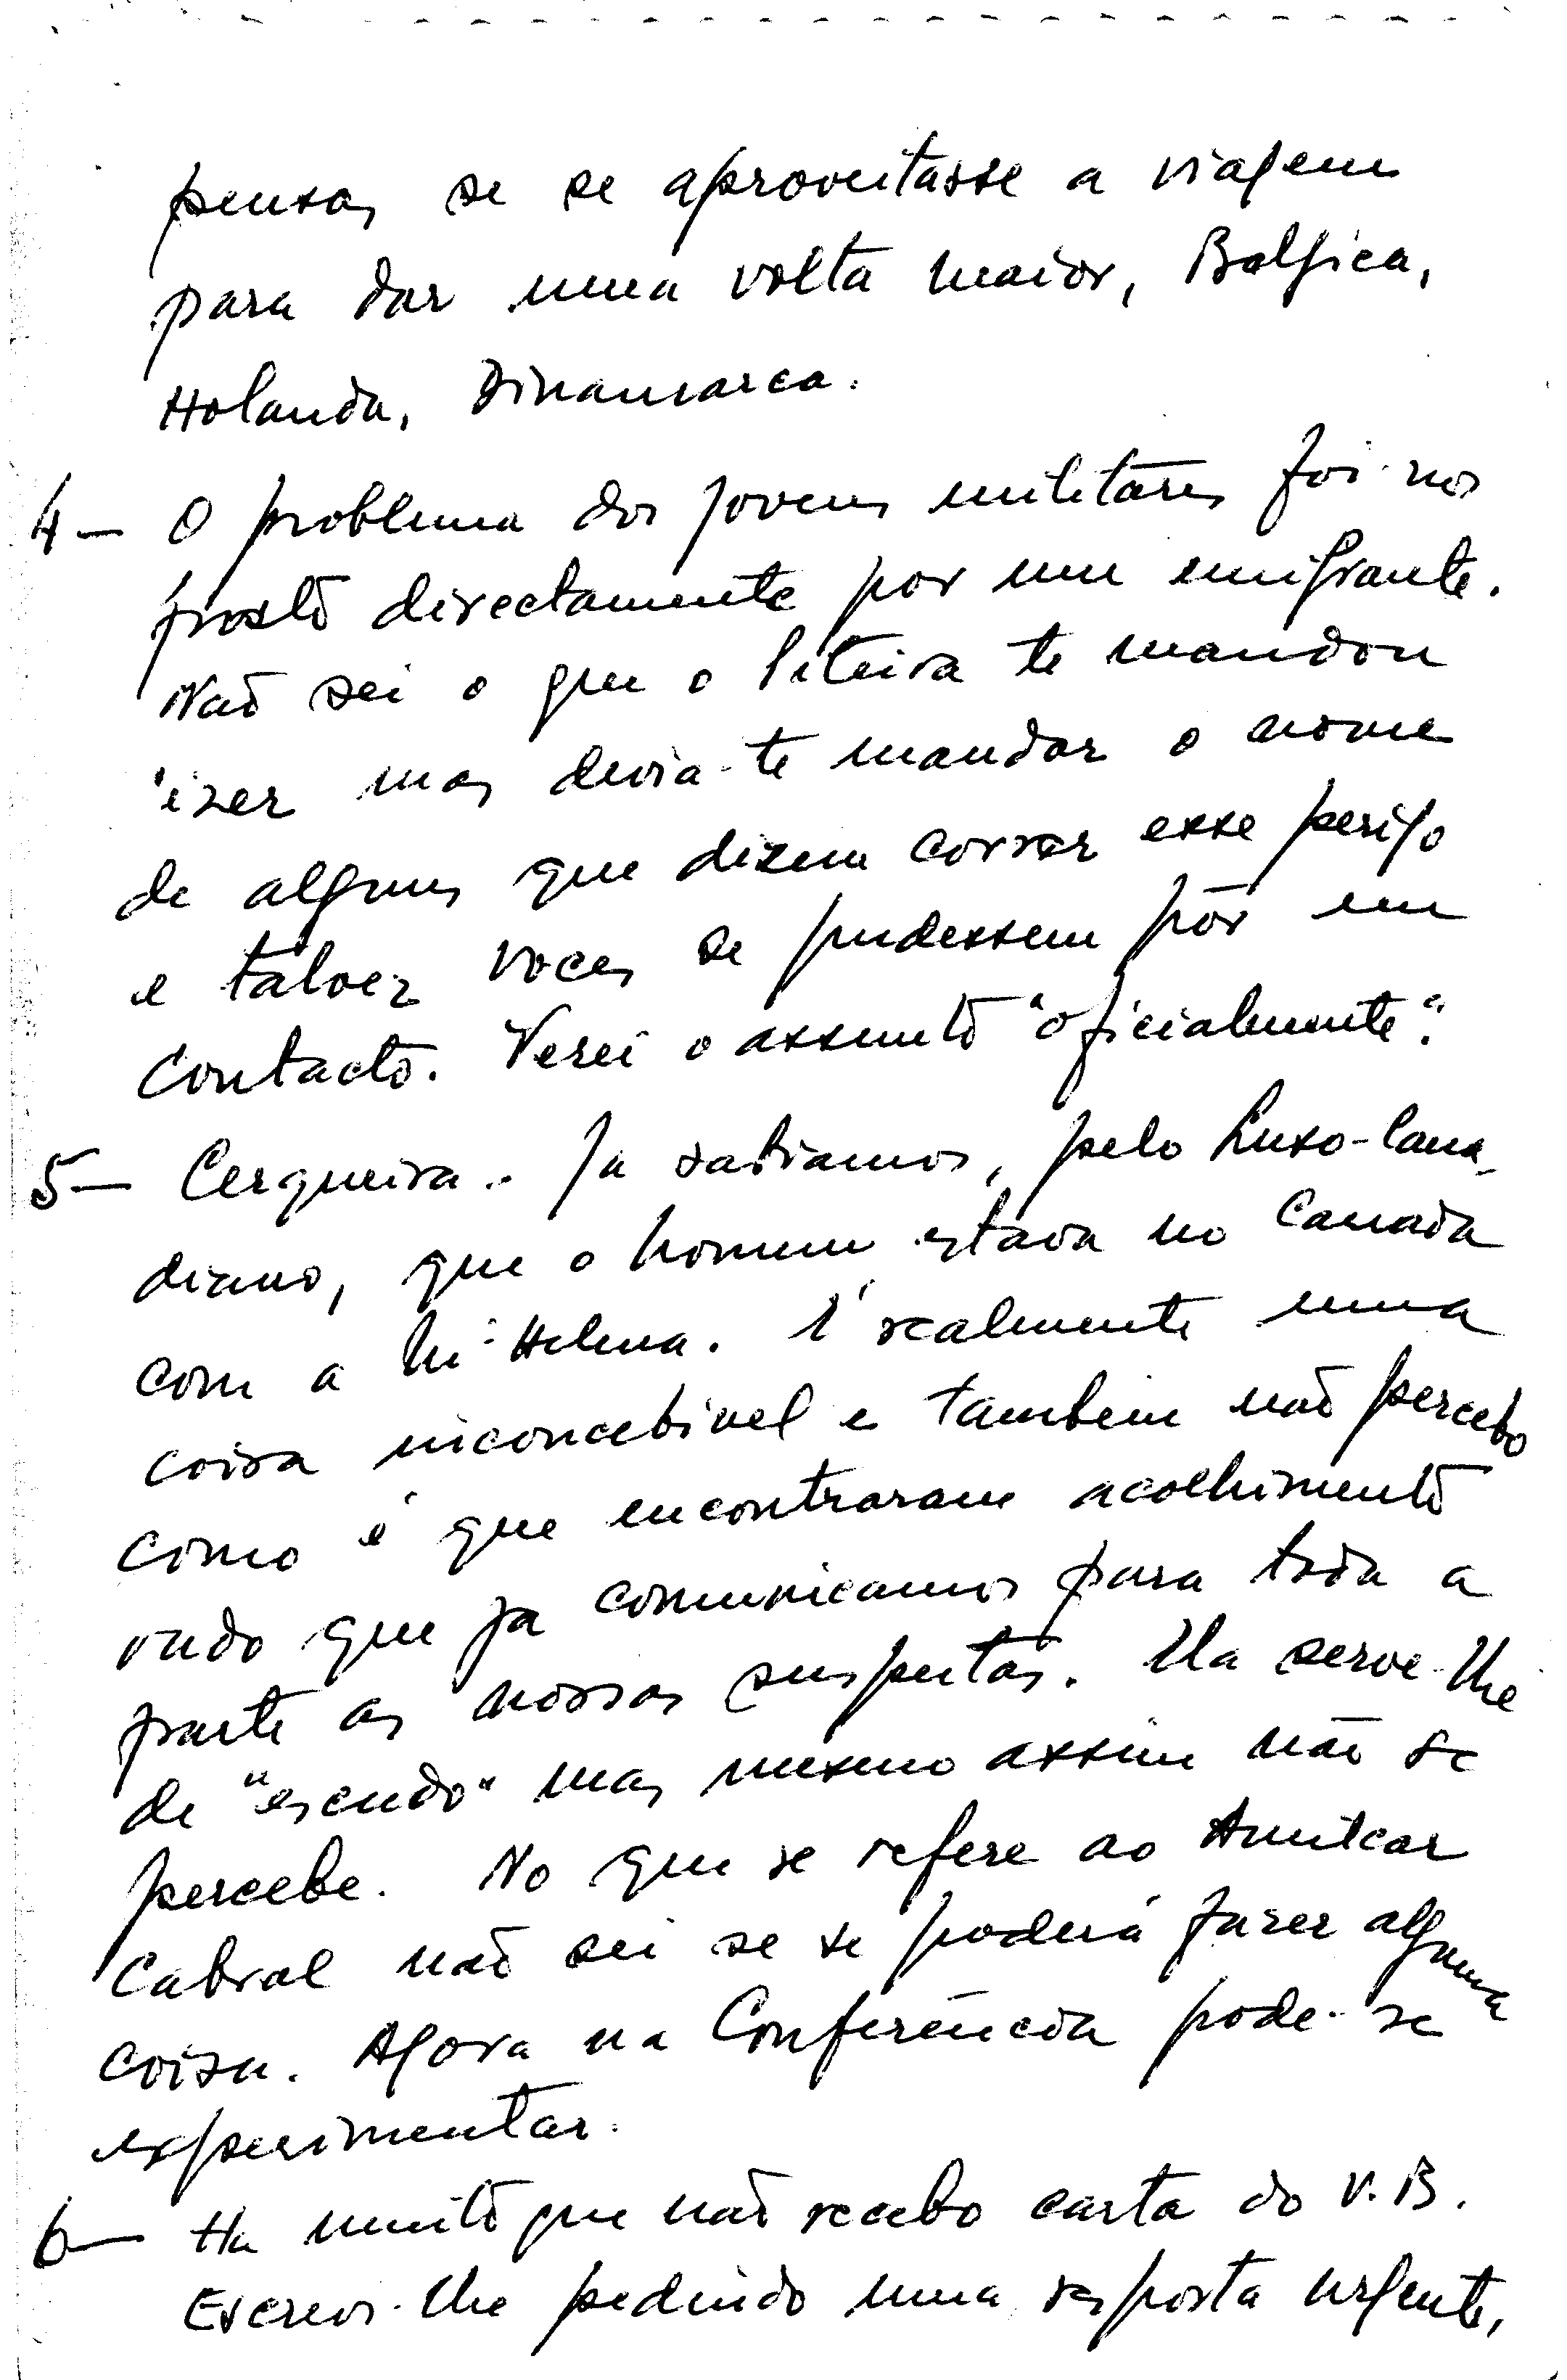 pensas se se aproveitasse a viagem
para dar uma volta maior, Belgica,
Holanda, Dinamarca.
4 - O problema dos jovens militares foi-nos
posto directamente por um emigrante.
Não sei o que o Piteira te mandou
izer mas devia-te mandar o nome
de alguns que dizem correr esse perigo
e talvez voces se pudessem pôr em
contacto. Verei o assunto "oficialmente".
5 - Cerqueira.. Ja sabiamos, pelo Luso-Cana-
diano, que o homem estava no Canada
com a Mª Helena. É realmente uma
coisa inconcebivel e tambem não percebo
como é que encontraram acolhimento
visto que ja comunicamos para toda a
parte as nossas suspeitas. Ela serve-lhe
de "escudo" mas mesmo assim não se
percebe. No que se refere ao Amilcar
Cabral não sei se se poderá fazer alguma
coisa. Agora na Conferência pode-se
experimentar.
6 - Ha muito que não recebo carta do V.B.
Escrevi-lhe pedindo uma resposta urgente,